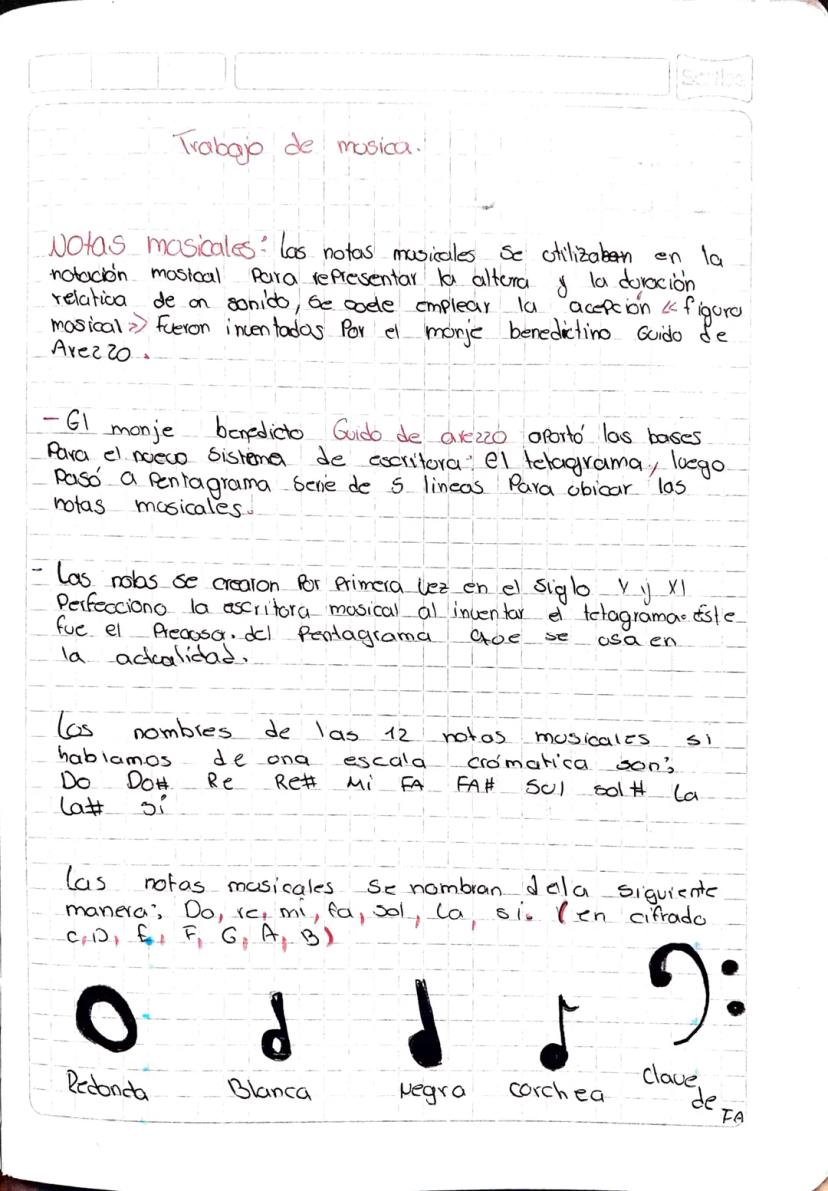 Scribe
Trabajo de musica.
Notas musicales: las notas musicales se utilizaban en la
notación musical Para representar la altura y la duración
relativa de un sonido, se puede emplear la acepción << figura
musical >> Fueron inventadas Por el monje benedictino Guido de
Arezzo.
- El monje benedicto Guido de arezzo aportó las bases
Para el nuevo Sistema de escritura: el tetagrama, luego
Pasó a Pentagrama serie de 5 lineas Para ubicar las
notas musicales.
- Las notas se crearon Por Primera vez en el Siglo V y XI
Perfecciono la escritura musical al inventar el tetagrama. Este
fue el del Pentagrama que se usa en
la actualidad.
Los nombres de las 12 notas musicales si
hablamos de una escala cromatica son:
Do Do# Re Re# Mi FA FA# Sol sol# La
La# si
Las notas musicales se nombran dela siguiente
manera: Do, re, mi, fa, sol, La, si. (en cifrado
C, D, E, F, G, A, B)
Redonda Blanca Negra corchea Clave
de FA